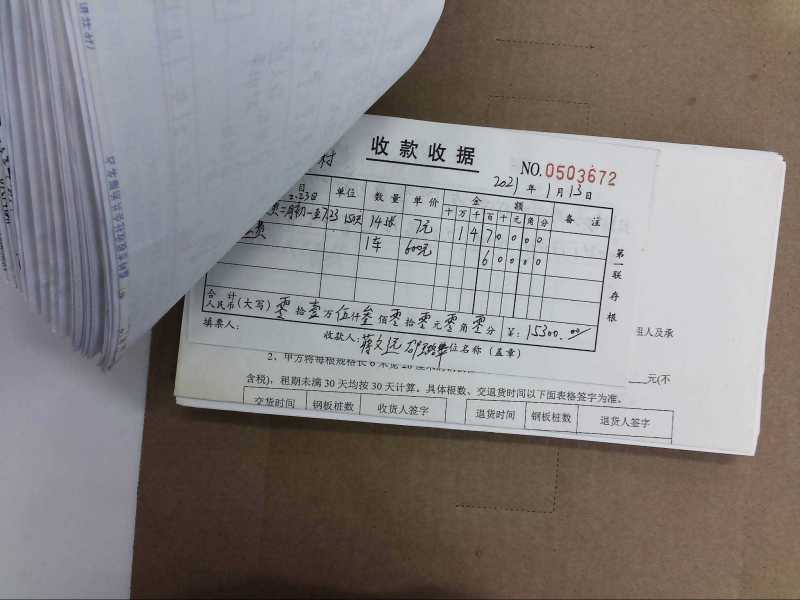 收款收据
NO.0503672
村
2021年1月13日
单位 数量 单价 金额 备注
十万千百十元角分
费二月初一至7.23 150天 14块 7元 1470000
费 1车 600元 60000
合计
人民币(大写)零拾壹万伍仟叁佰零拾零元零角零分 ¥:15300.00
填票人: 收款人:蒋文远 位名称(盖章)
第一联存根
组人及承
2、甲方将每根规格长6米宽
元(不
含税),租期未满30天均按30天计算。具体根数、交退货时间以下面表格签字为准。
交货时间 钢板桩数 收货人签字 退货时间 钢板桩数 退货人签字